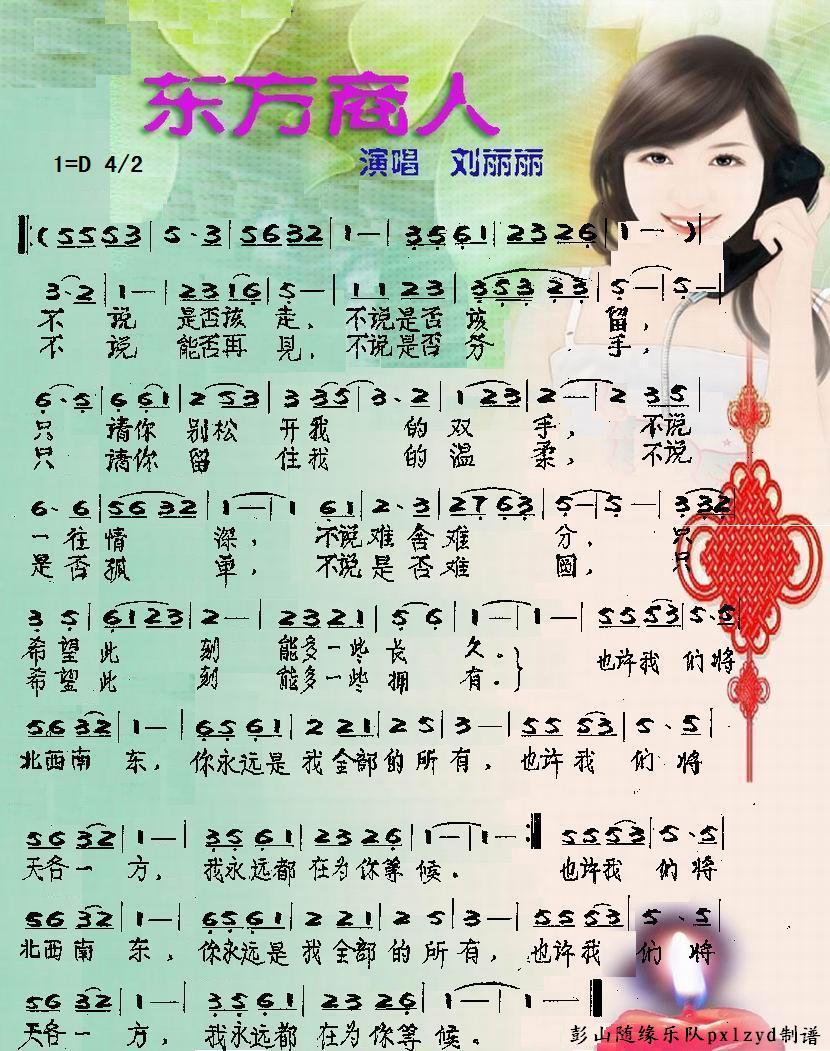 东方商人
1=D 4/2
演唱 刘丽丽
‖:(5 5 5 3|5·3|5 6 3 2|1—|3 5 6 1|2 3 2 6|1—)|
3·2|1—|2 3 1 6|5—|1 1 2 3|3 5 3 2 3|5—|5—|
不 说 是否该 走, 不说是否 该 留,
不 说 能否再 见, 不说是否 分 手,
6·5|6 6 1|2 5 3|3 3 5|3·2|1 2 3|2—|2 3 5|
只 请你 别松 开我 的 双 手, 不说
只 请你 留 住我 的 温 柔, 不说
6·6|5 6 3 2|1—|1 6 1|2·3|2 7 6 3|5—|5—|3 3 2|
一往 情 深, 不说 难 舍 难 分, 只
是否 孤 单, 不说 是 否 难 圆, 只
3 5|6 1 2 3|2—|2 3 2 1|5 6|1—|1—|5 5 5 3|5·5|
希望 此 刻 能多一些 长 久. 也许我 们将
希望 此 刻 能多一些 拥 有.
5 6 3 2|1—|6 5 6 1|2 2 1|2 5|3—|5 5 5 3|5·5|
北西南 东, 你永远是 我全部 的 所 有, 也许我 们 将
5 6 3 2|1—|3 5 6 1|2 3 2 6|1—|1—:‖ 5 5 5 3|5·5|
天各一 方, 我永远都 在为你等 候. 也许我 们将
5 6 3 2|1—|6 5 6 1|2 2 1|2 5|3—|5 5 5 3|5·5|
北西南 东, 你永远是 我全部 的 所 有, 也许我 们 将
5 6 3 2|1—|3 5 6 1|2 3 2 6|1—|1—‖
天各一 方, 我永远都 在为你等 候.
彭山随缘乐队pxlzyd制谱